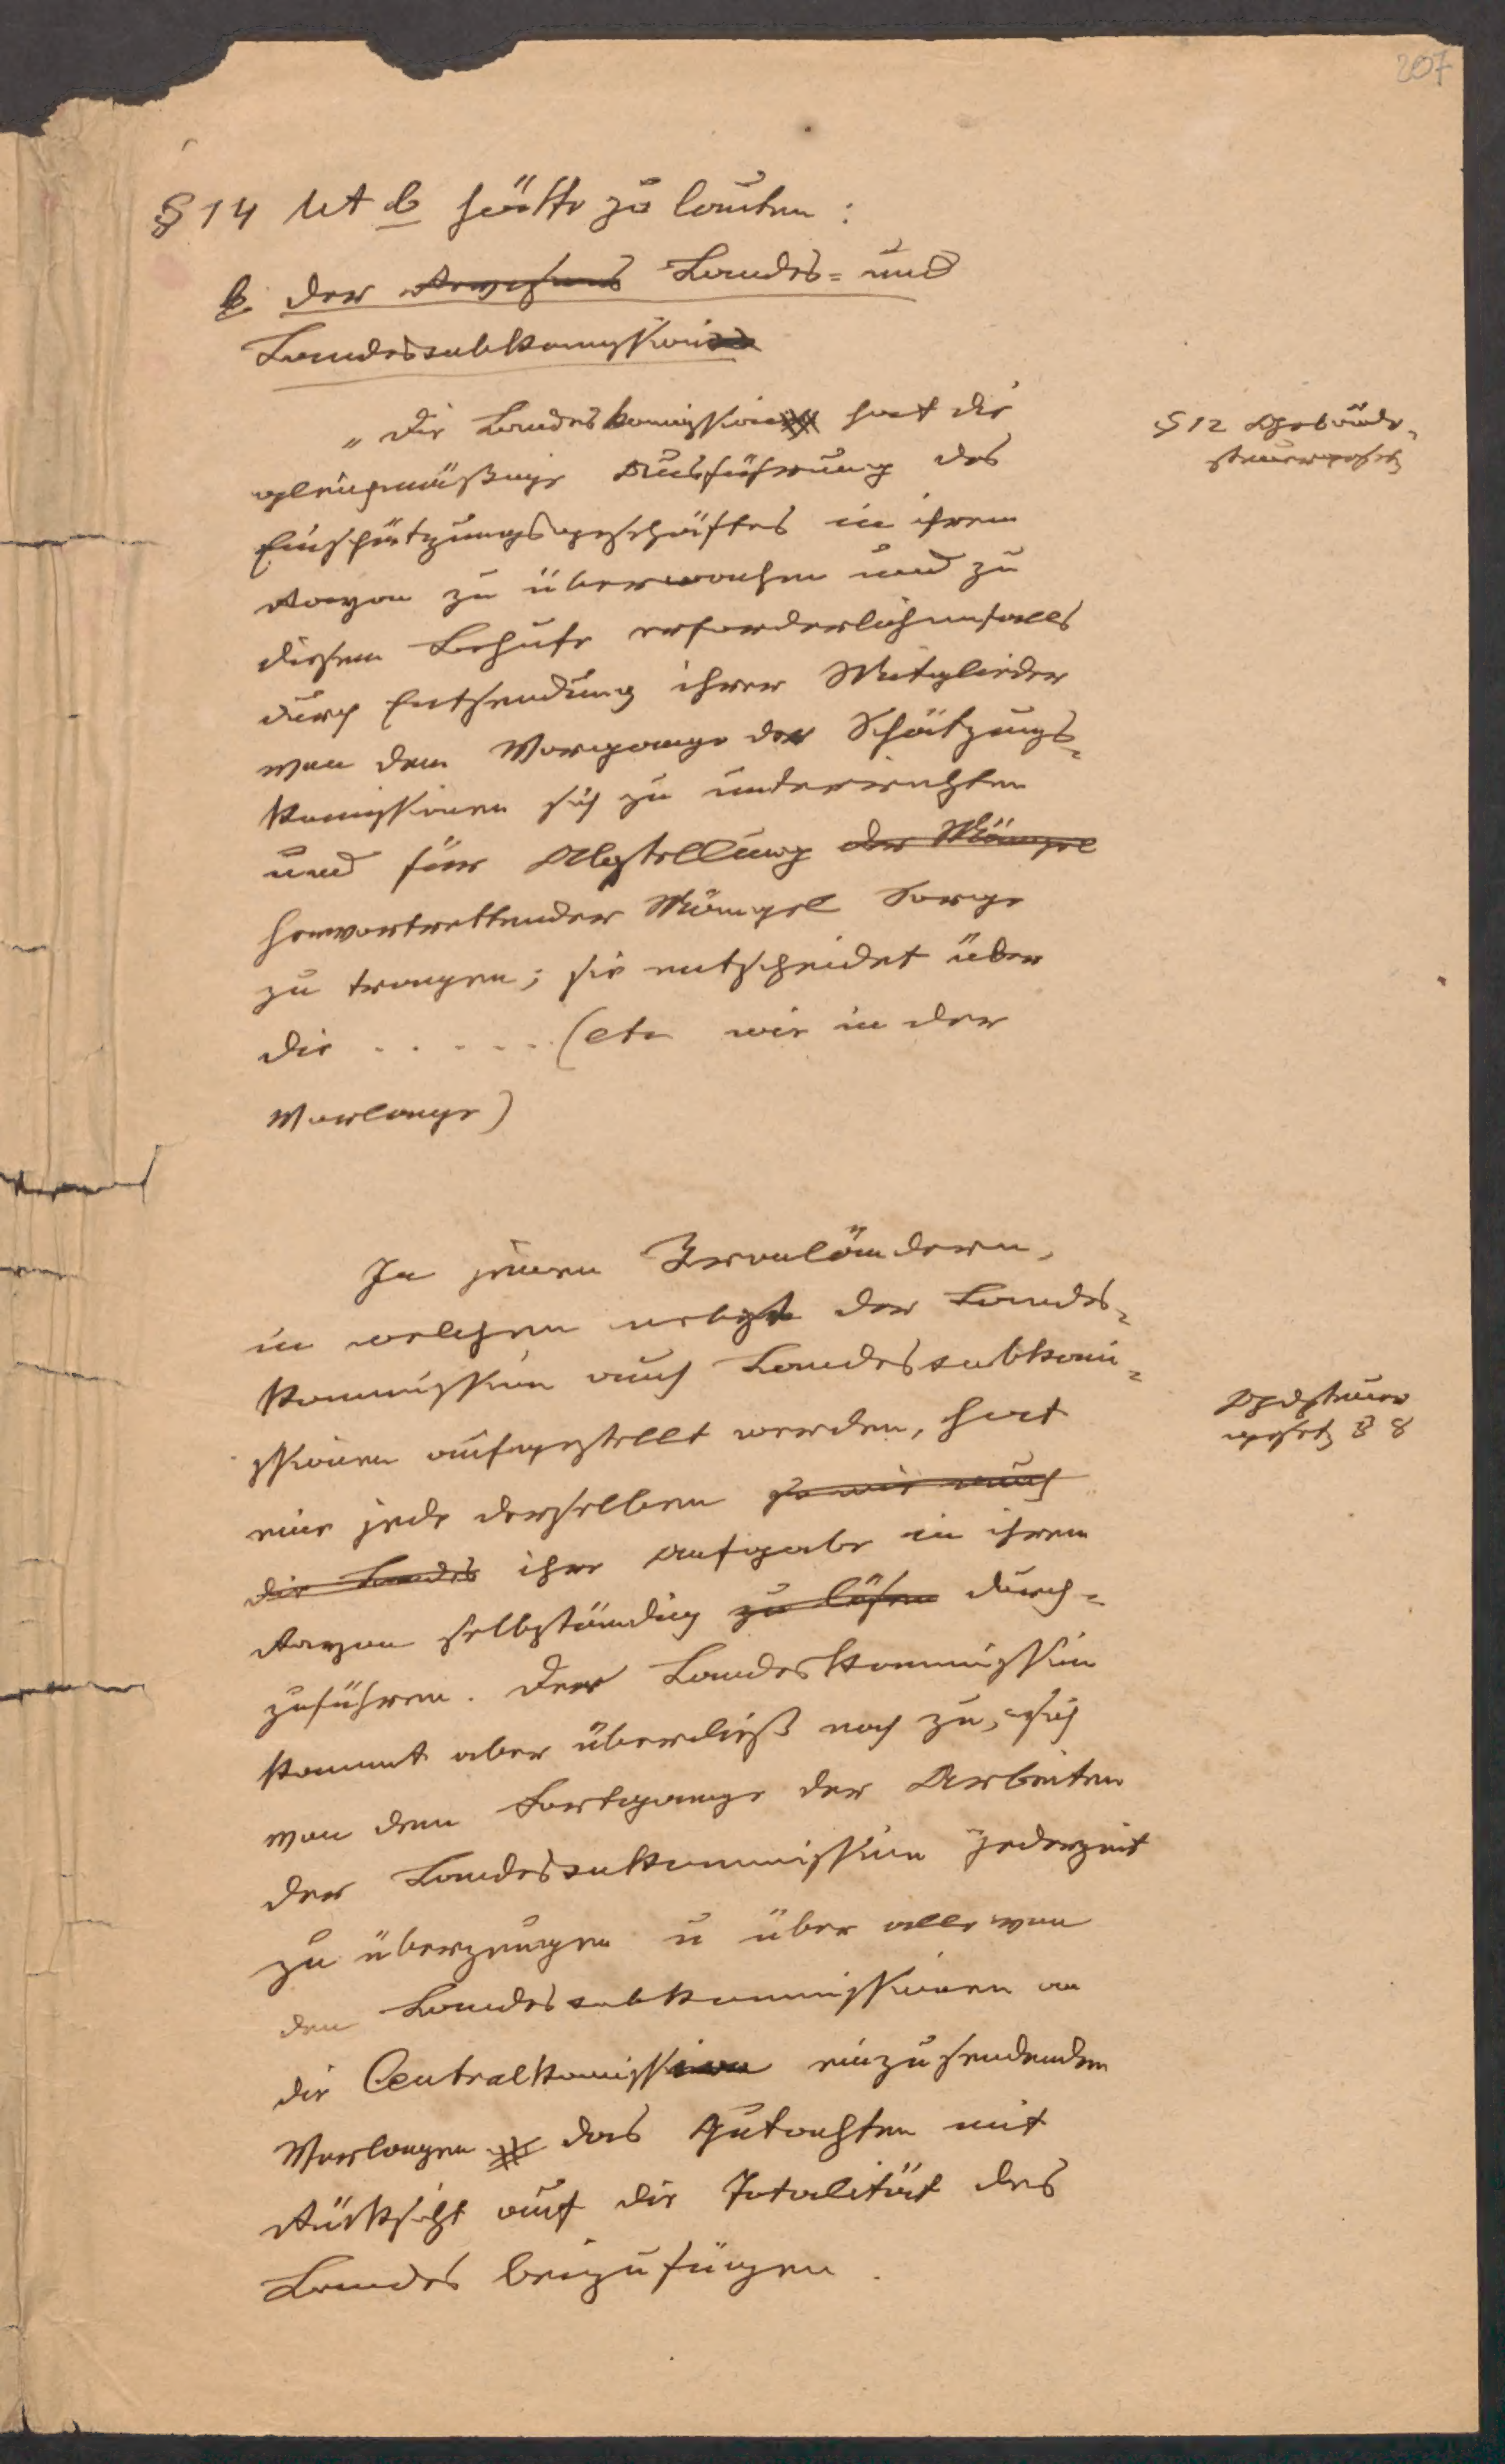 207
§ 14 lit b hätte zu lauten:
b. der Landes- und
Landessubkomission
„Die Landeskomission hat die
gleichmäßige Ausführung des
Einschätzungsgeschäftes in ihrem
Rayon zu überwachen und zu
diesem Behufe erforderlichenfalls
durch Entsendung ihrer Mitglieder
von dem Vorgange der Schätzungs-
komissionen sich zu unterrichten
und für Abstellung der Mängel
hervortrettender Mängel Sorge
zu tragen; sie entscheidet über
die . . . . . . (etc wie in der
Vorlage)
§ 12 Gebäude-
steuergesetz
In jenen Kronländern,
in welchen nebst der Landes-
kommission auch Landessubkomi-
ssionen aufgestellt werden, hat
eine jede derselben so wie auch
die Landes ihre Aufgabe in ihrem
Rayon selbständig zu lösen durch-
zuführen. Der Landeskommission
kommt aber überdieß noch zu, sich
von dem Fortgange der Arbeiten
der Landessukommission jederzeit
zu überzeugen u über alle von
den Landessubkommissionen an
die Centralkomission einzusendenden
Vorlagen das Gutachten mit
Rücksicht auf die Totalität des
Landes beizufügen.
Gdsteuer
gesetz § 8